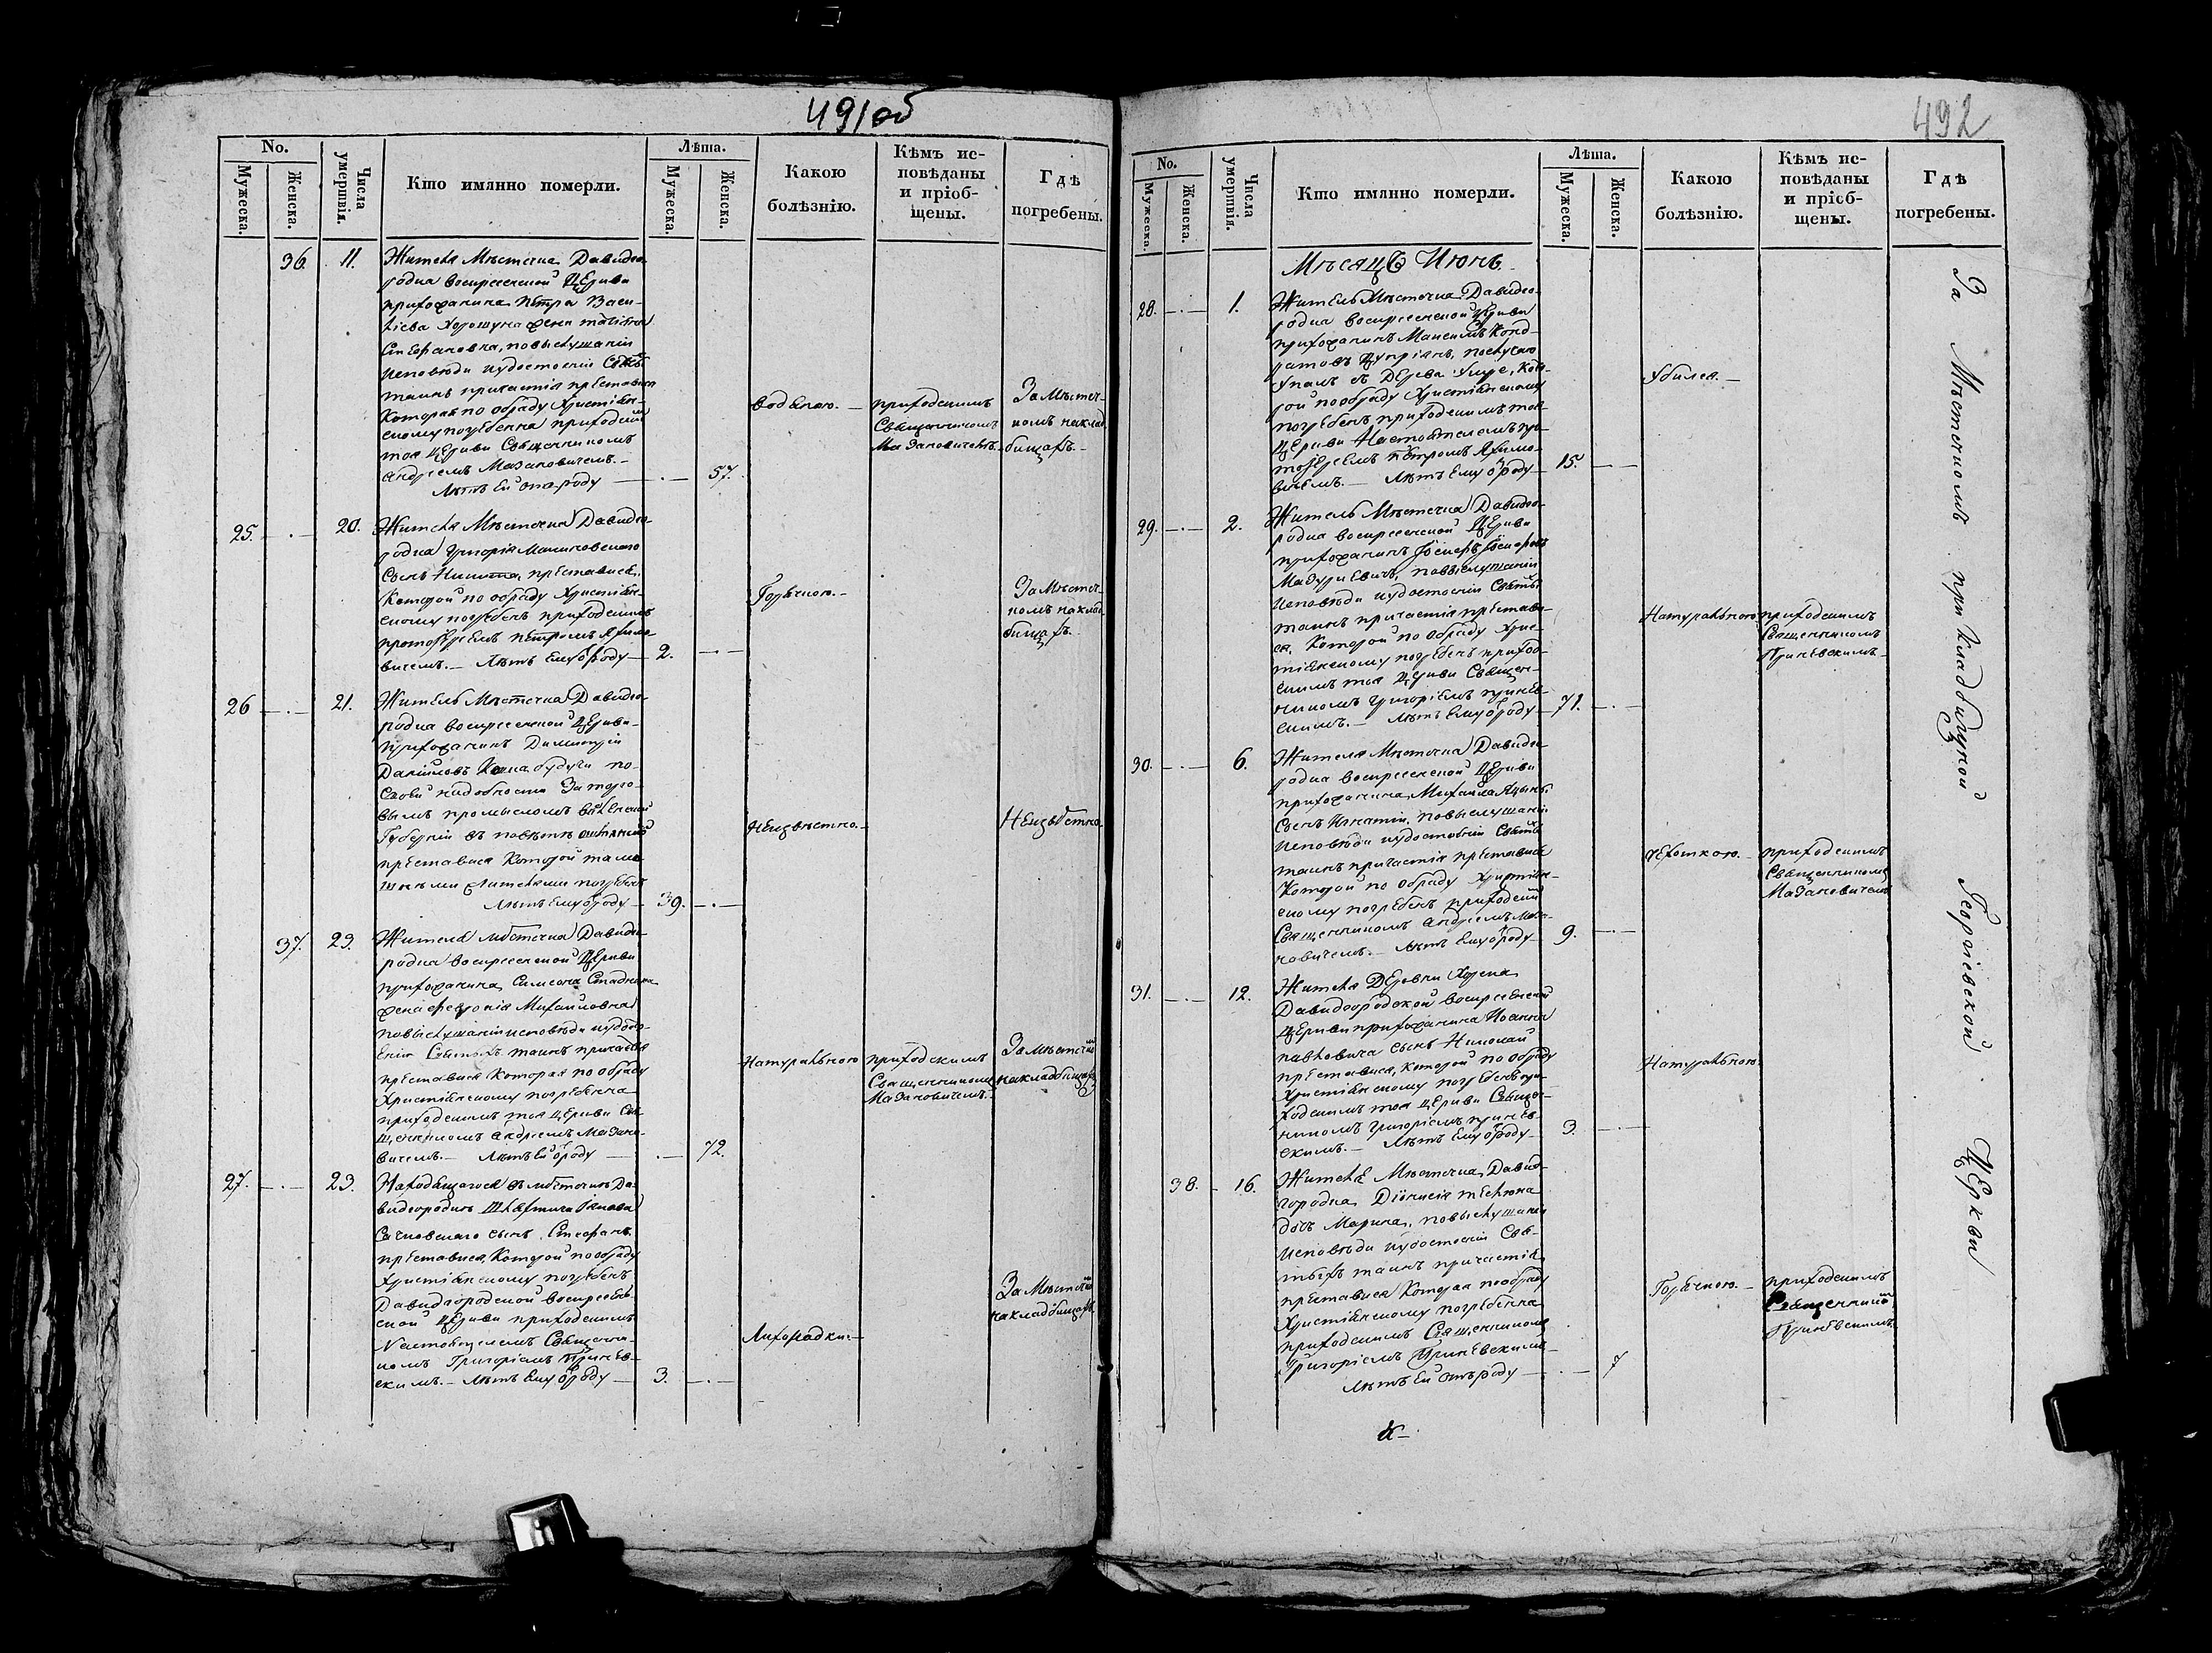 491об
No.
Мужеска.
Женска.
Числа умершвія.
Кто имянно померли.
Лѣта.
Мужеска.
Женска.
Какою болѣзнію.
Кѣмъ исповѣданы и пріобщены.
Гдѣ погребены.
36. 11. Жителя Мѣстечка Давидго-
родка воскресенской Церкви
прихожанина Петра Васи-
ліева жена
Стефановна, по выслушаніи
исповѣди и удостоеніи Святыхъ
таинъ причастія преставися
Которая по обряду Христіян-
скому погребенна приходскимъ
тоя Церкви Священникомъ
Андреемъ Мазановичемъ.-
Лѣтъ ей отъ роду 57.
водяною.
приходскимъ
Священникомъ
Мазановичемъ.
За Мѣстеч-
комъ на клад-
бищахъ.
25. 20. Жителя Мѣстечка Давидго-
родка Григорія Малиновского
сынъ Никита, преставися,
Которой по обряду Христіян-
скому погребенъ приходскимъ
протоіереемъ Петромъ Яхимо-
вичемъ.- Лѣтъ ему отроду 2.
Горячкою.-
За Мѣстеч-
комъ на клад-
бищахъ.
26 21. Житель Мѣстечка Давидго-
родка воскресенской Церкви
прихожанинъ Димитрій
Даниловъ будучи по
своей надобности за торго-
вымъ промысломъ
Губерніи въ повѣтѣ
преставися Которой тамо
жителми погребенъ
Лѣтъ ему отроду 39.
Неизвѣстно.-
Неизвѣстно.
37. 23. Жителя мѣстечка Давидго-
родка воскресенской Церкви
прихожанина Симеона
жена Феврония Михайловна
по выслушаніи исповѣди и удосто-
еніи Святыхъ таинъ причастія
преставися Которая по обряду
Христіянскому погребенна
приходскимъ тоя Церкви Свя-
щенникомъ Андреемъ Мазано-
вичемъ.- Лѣтъ ей отроду 72.
Натуральною
приходскимъ
Священникомъ
Мазановичемъ.
За Мѣстечкомъ
на кладбищахъ
27. 23. Находящагося въ мѣстечкѣ Да-
видгородкѣ Шляхтича
сынъ Стефанъ
преставися, Которой по обряду
Христіянскому погребенъ
Давидгородской воскресен-
ской Церкви приходскимъ
Настоятелемъ Священни-
комъ Григоріемъ Гринев-
скимъ.- Лѣтъ ему отроду 3.
Лихорадкою.-
За Мѣстечкомъ
на кладбищахъ
492
No.
Мужеска.
Женска.
Числа умершвія.
Кто имянно померли.
Лѣта.
Мужеска.
Женска.
Какою болѣзнію.
Кѣмъ исповѣданы и пріобщены.
Гдѣ погребены.
Мѣсяцъ Июнь.
28. 1. Житель Мѣстечка Давидго-
родка воскресенской Церкви
прихожанинъ Максимъ Конд-
ратовъ
упалъ съ Дерева умре, Кото-
рой по обряду Христіянскому
погребенъ приходскимъ тоя
Церкви Настоятелемъ про-
тоіереемъ Петромъ Яхимо-
вичемъ.- Лѣтъ ему отроду 15.
Убился.-
29. 2. Житель Мѣстечка Давидго-
родка воскресенской Церкви
прихожанинъ
по выслушаніи
исповѣди и удостоеніи Святыхъ
таинъ причастія престави-
ся, Которой по обряду Хрис-
тіянскому погребенъ приход-
скимъ тоя Церкви Священ-
никомъ Григоріемъ Гринев-
скимъ.- Лѣтъ ему отроду 71.
Натуральною
приходскимъ
Священникомъ
Гриневскимъ.
30. 6. Жителя Мѣстечка Давидго-
родка воскресенской Церкви
прихожанина Михаила
сынъ Игнатій, по выслушаніи
исповѣди и удостоеніи Святыхъ
таинъ причастія преставися
Которой по обряду Христіян-
скому погребенъ приходскимъ
Священникомъ Андреемъ Маза-
новичемъ.- Лѣтъ ему отроду 9.
чехоткою.
приходскимъ
Священникомъ
Мазановичемъ
31. 12. Жителя Деревни
Давидгородской воскресенской
Церкви прихожанина Иоанна
Павловича сынъ Николай
преставися, Которой по обряду
Христіянскому погребенъ при-
ходскимъ тоя Церкви Священ-
никомъ Григоріемъ Гринев-
скимъ.- Лѣтъ ему отроду 3.
Натуральною.
38. 16. Жителя Мѣстечка Давид-
городка Діонисія
дочь Марина, по выслушаніи
исповѣди и удостоеніи Свя-
тыхъ таинъ причастія
преставися Которая по обряду
Христіянскому погребенна
приходскимъ Священникомъ
Григоріемъ Гриневскимъ
Лѣтъ ей отъ роду 7
Горячкою.-
приходскимъ
Священникомъ
Гриневскимъ
За Мѣстечкомъ при кладбищной Георгіевской Церкви